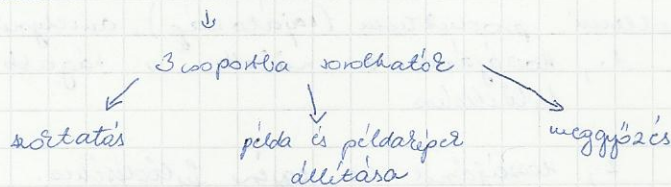 3 csoportba sorolhatók
szoktatás
példa és példakép
állítása
meggyőzés